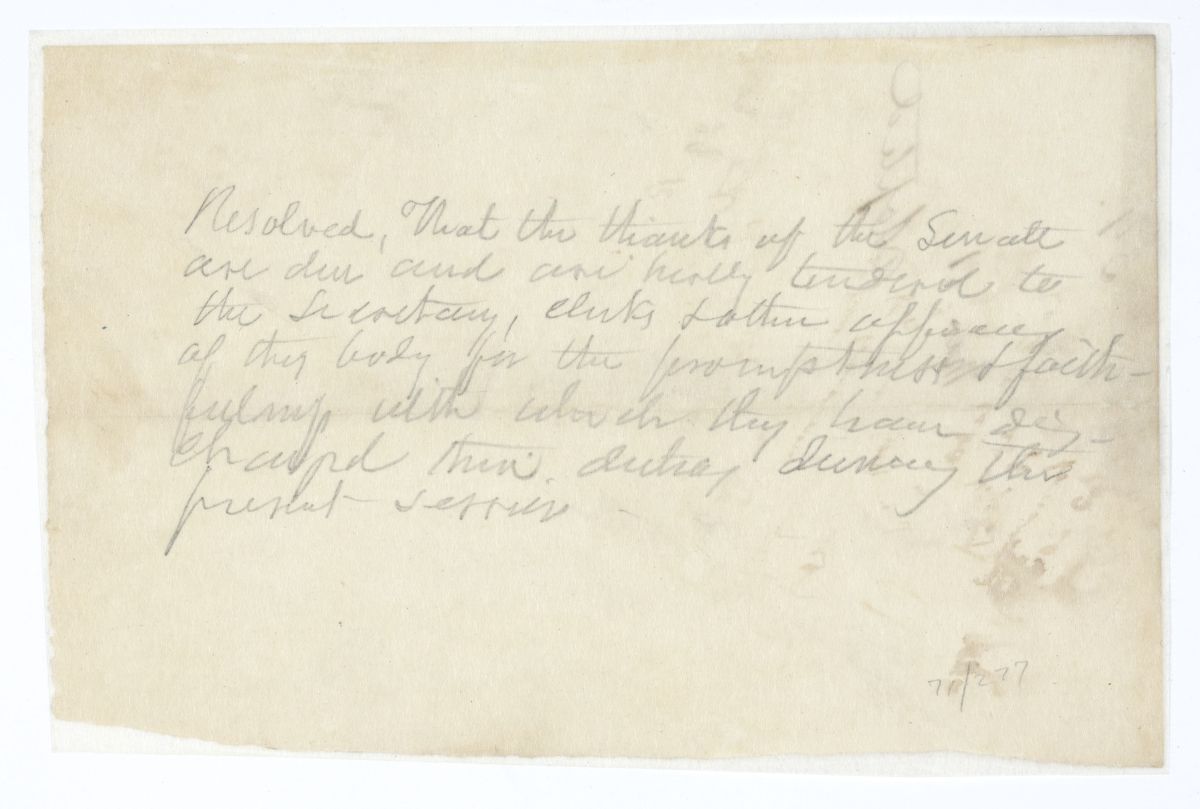 Resolved, That the thanks of the Senate
are due and are hereby tendered to
the Secretary, clerks & other officers
of this body for the promptness & faith-
fulness with which they have dis-
charged their duties during the
present session
71/277